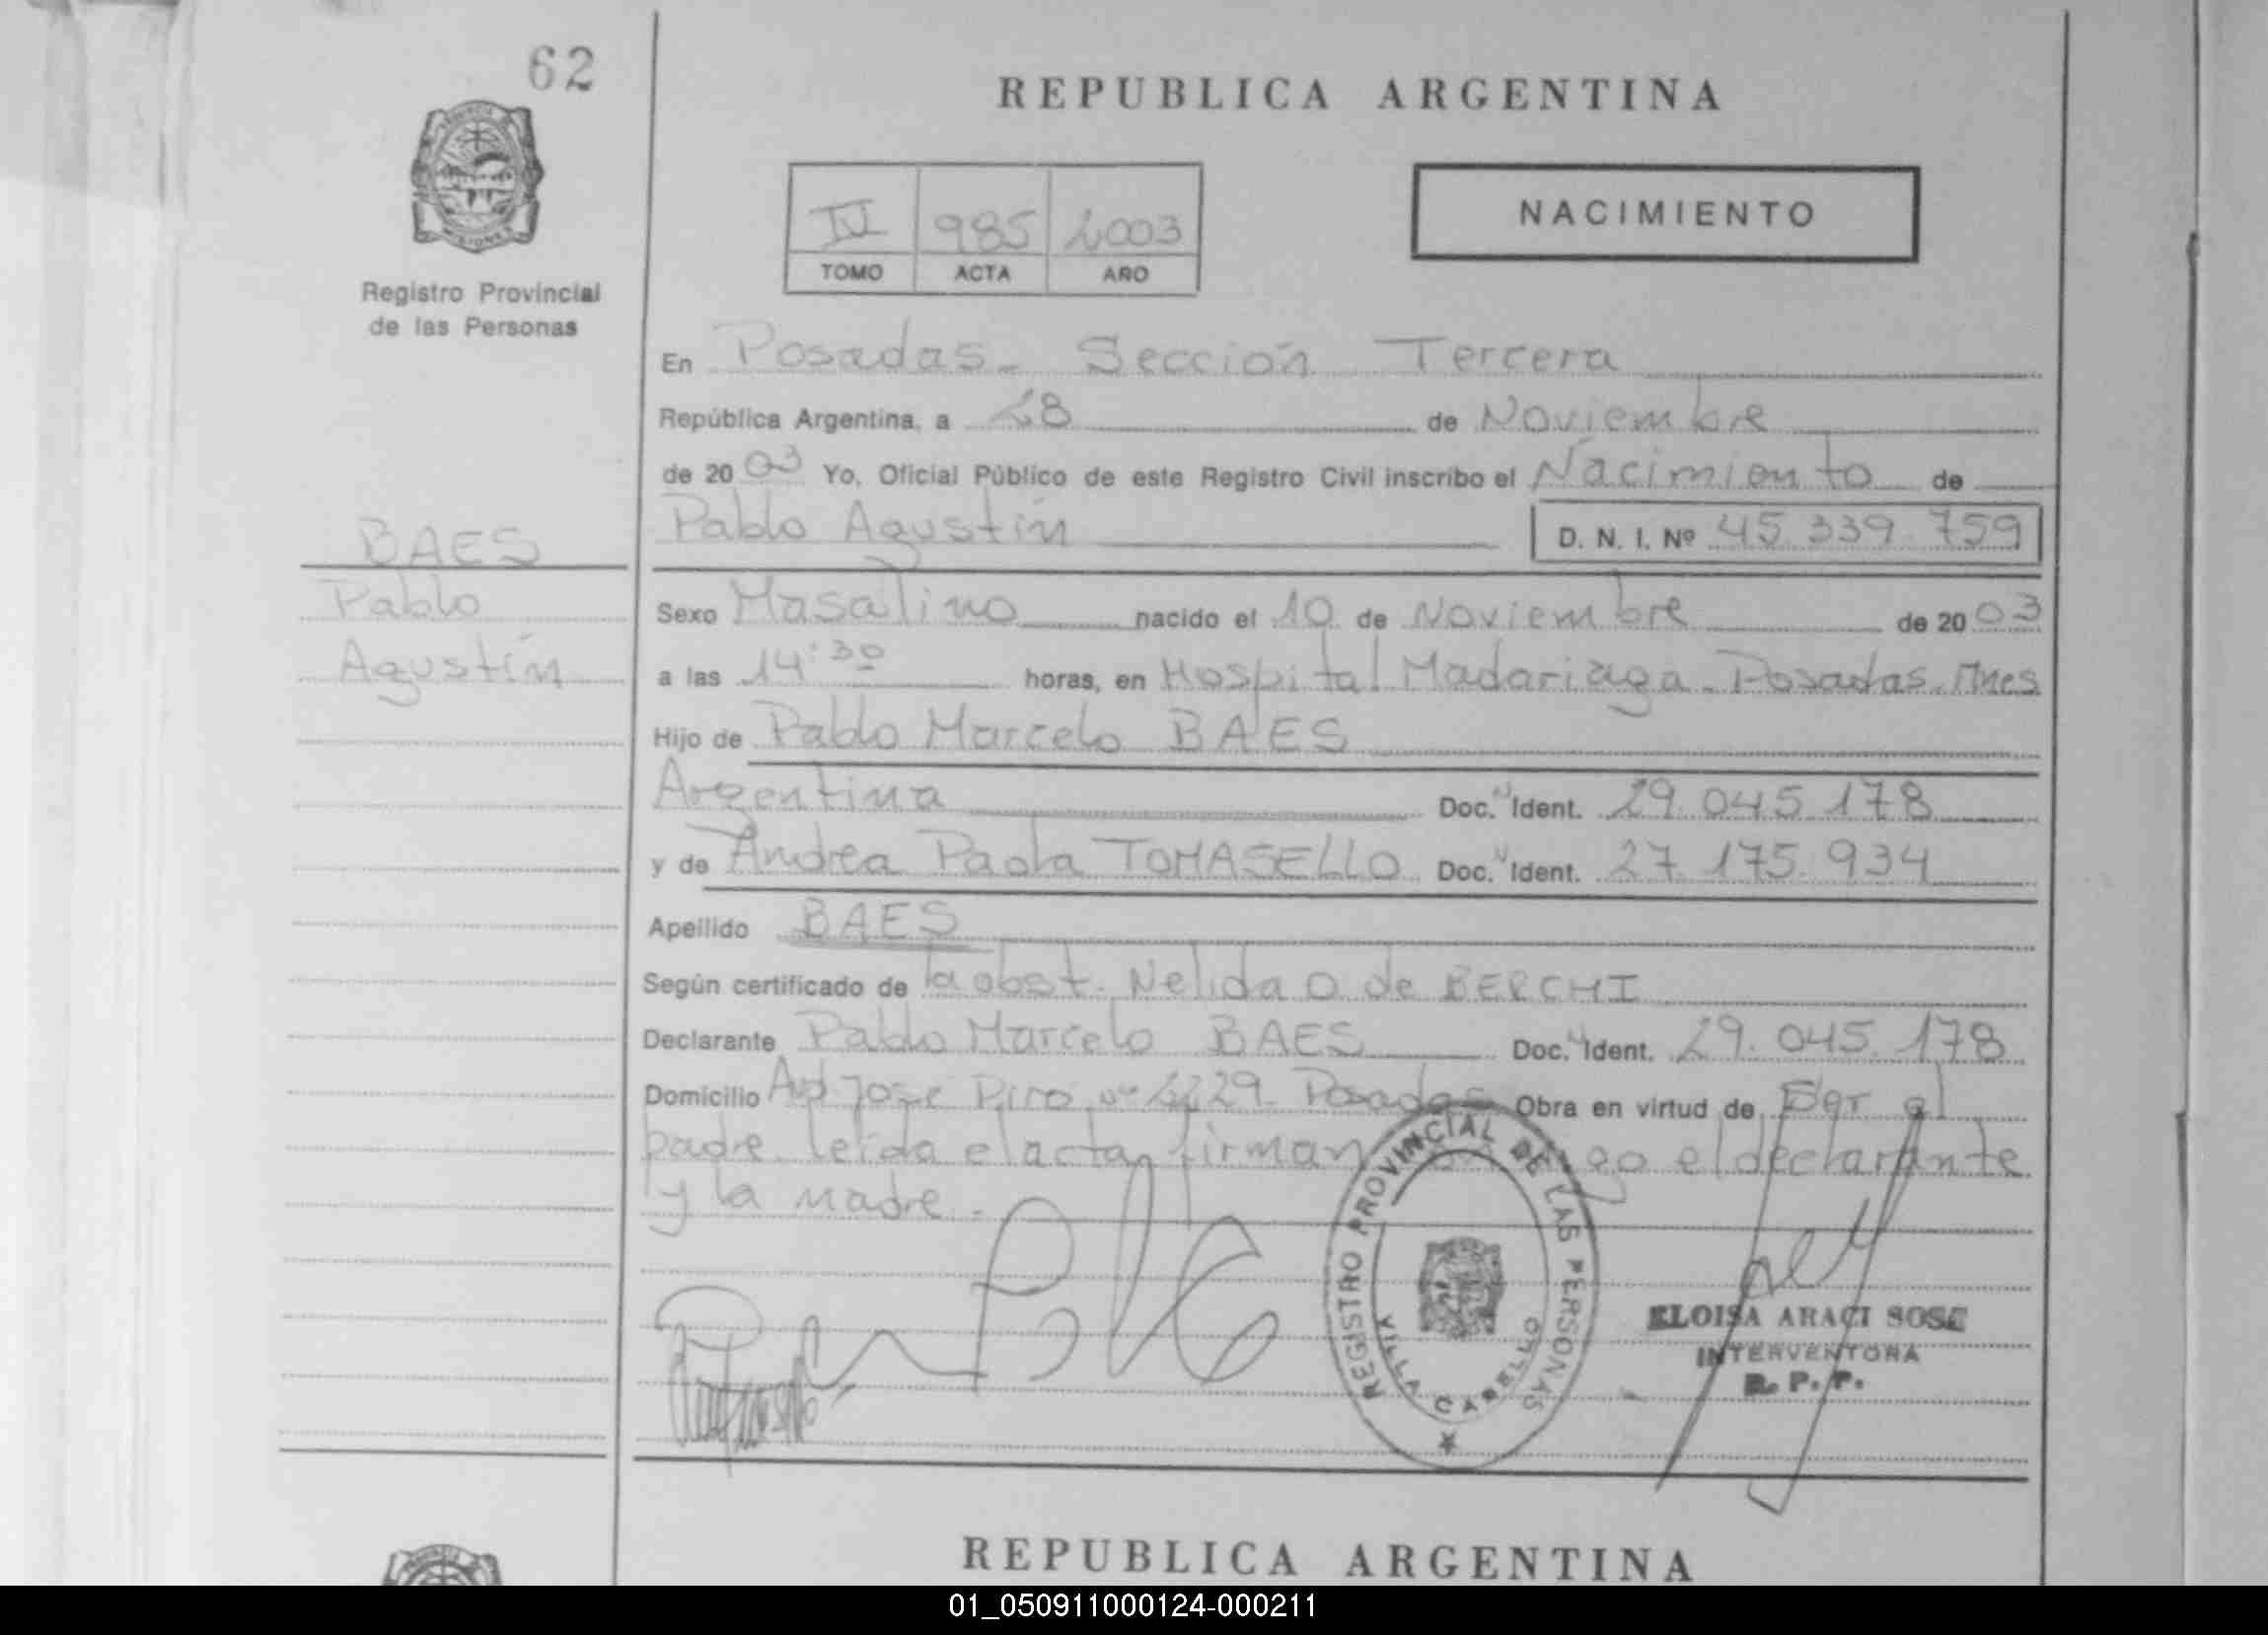 62
REPUBLICA ARGENTINA
NACIMIENTO
985 2003
TOMO ACTA AÑO
Registro Provincial
de las Personas
MISIONES
En Posadas - Sección Tercera
República Argentina, a 28 de Noviembre
de 2003 Yo, Oficial Público de este Registro Civil inscribo el Nacimiento de
Pablo Agustín D. N. I. Nº 45.339.759
BAES
Pablo
Agustín
Sexo Masculino nacido el 10 de Noviembre de 2003
a las 14:30 horas, en Hospital Madariaga - Posadas. Mnes
Hijo de Pablo Marcelo BAES
Argentina Doc. Ident. 29.045.178
y de Andrea Paola TOMASELLO Doc. Ident. 27.175.934
Apellido BAES
Según certificado de la obst. Nelida O. de BERCHI
Declarante Pablo Marcelo BAES Doc. Ident. 29.045.178
Domicilio José Nº Posadas Obra en virtud de Ser el
padre. leída el acta, firman el declarante
y la madre.
REGISTRO PROVINCIAL DE LAS PERSONAS
VILLA CABELLO
ELOISA ARACI SOSE
INTERVENTORA
R. P. P.
REPUBLICA ARGENTINA
01_050911000124-000211